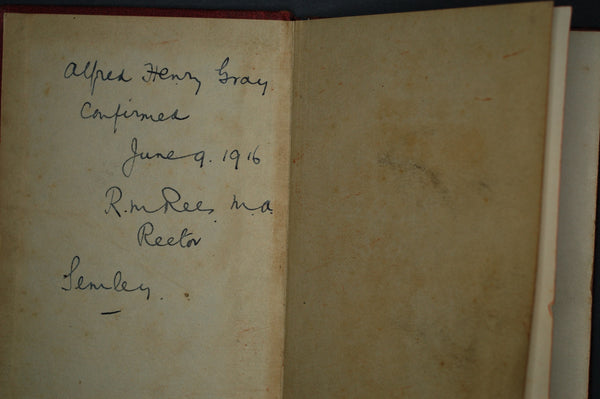 Alfred Henry Gray
Confirmed
June 9. 1916
R. M Rees. M.A.
Rector
Semley.